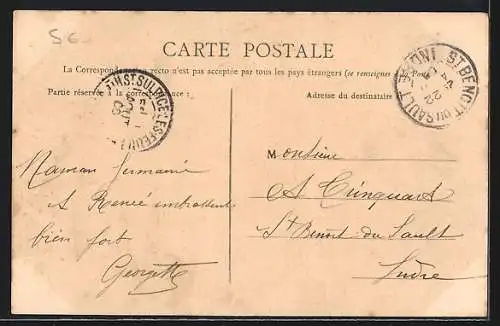 5c
CARTE POSTALE
La Correspondance au recto n'est pas acceptée par tous les pays étrangers (se renseigner à la Poste)
Partie réservée à la correspondance :
Adresse du destinataire
ST SULPICE-LES-FEUIL
ST BENOIT DU SAULT
Maman Germaine
& Renée embrassent
bien fort
Georgette
Monsieur
A
St Benoit-du-Sault
Indre